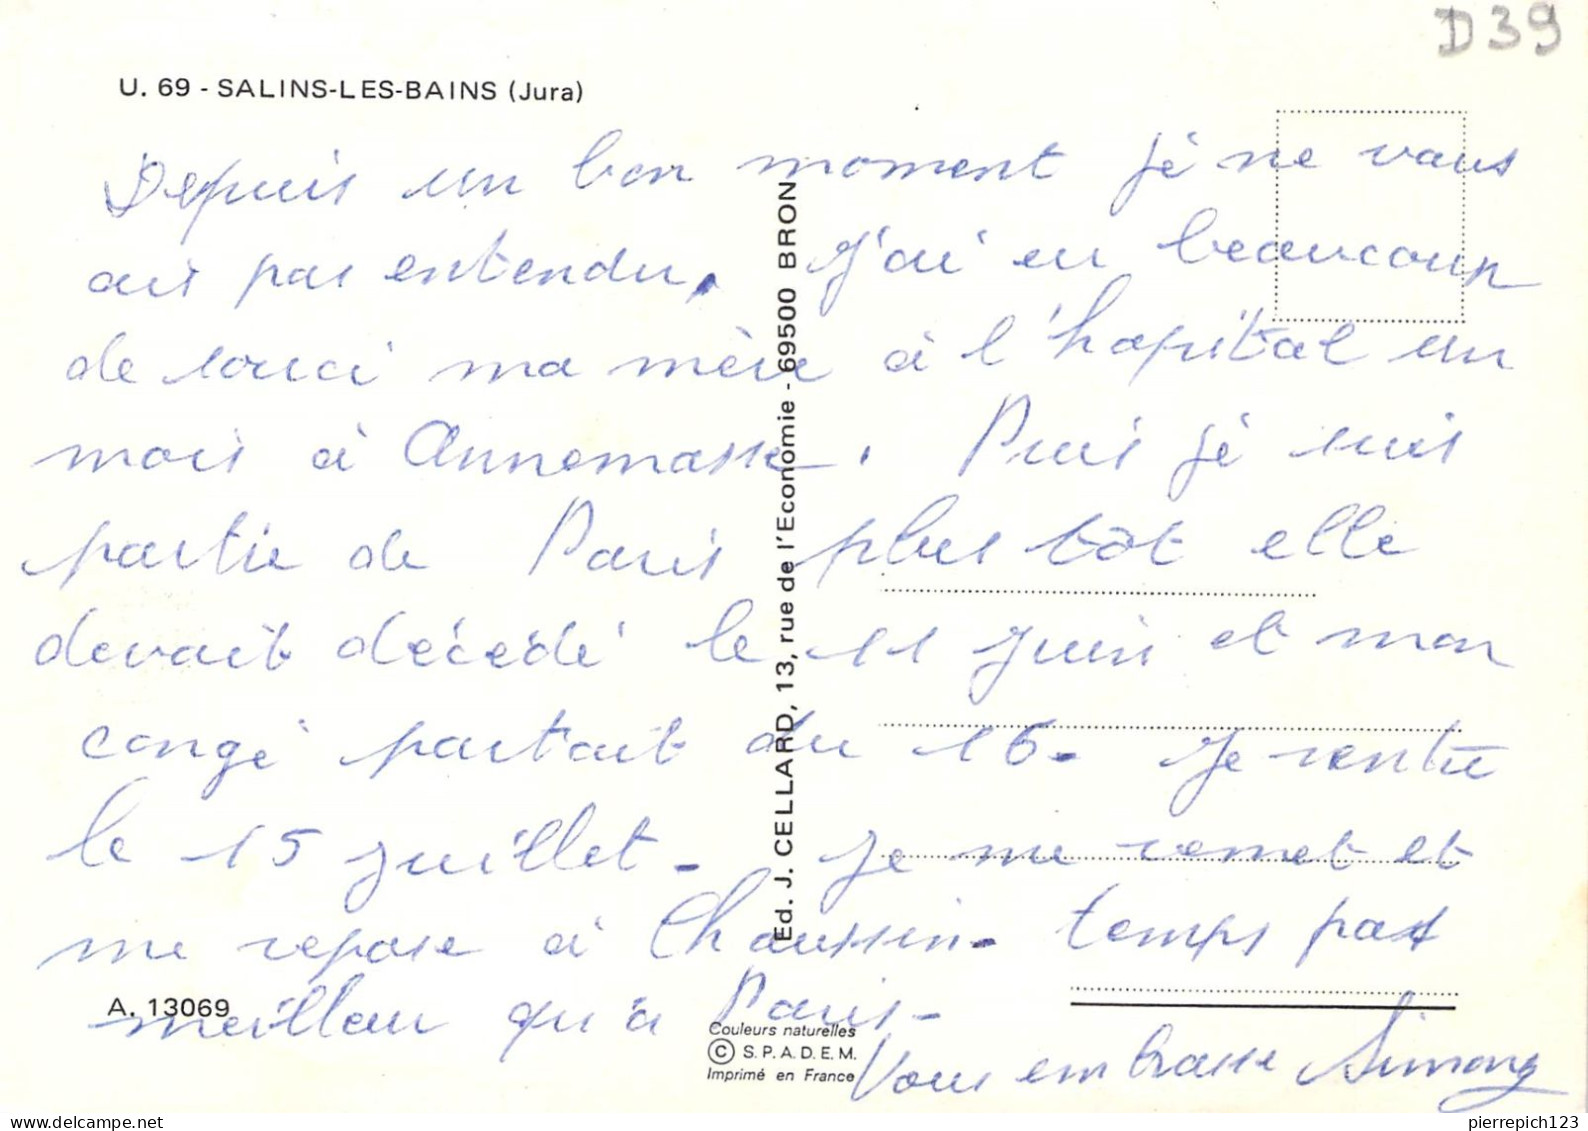 D39
U. 69 - SALINS-LES-BAINS (Jura)
Depuis un bon moment je ne vous
ais pas entendu. J'ai eu beaucoup
de souci ma mère à l'hopital un
mois à Annemasse. Puis je suis
partie de Paris plus tôt elle
devait décédé le 11 juin et mon
congé partait du 16. Je rentre
le 15 juillet - Je me remet et
me repose à Chaussin - temps pas
meilleur qu'à Paris -
Vous embrasse Simone
A. 13069
Ed. J. CELLARD, 13, rue de l'Economie - 69500 BRON
Couleurs naturelles
© S.P.A.D.E.M.
Imprimé en France
pierrepich123